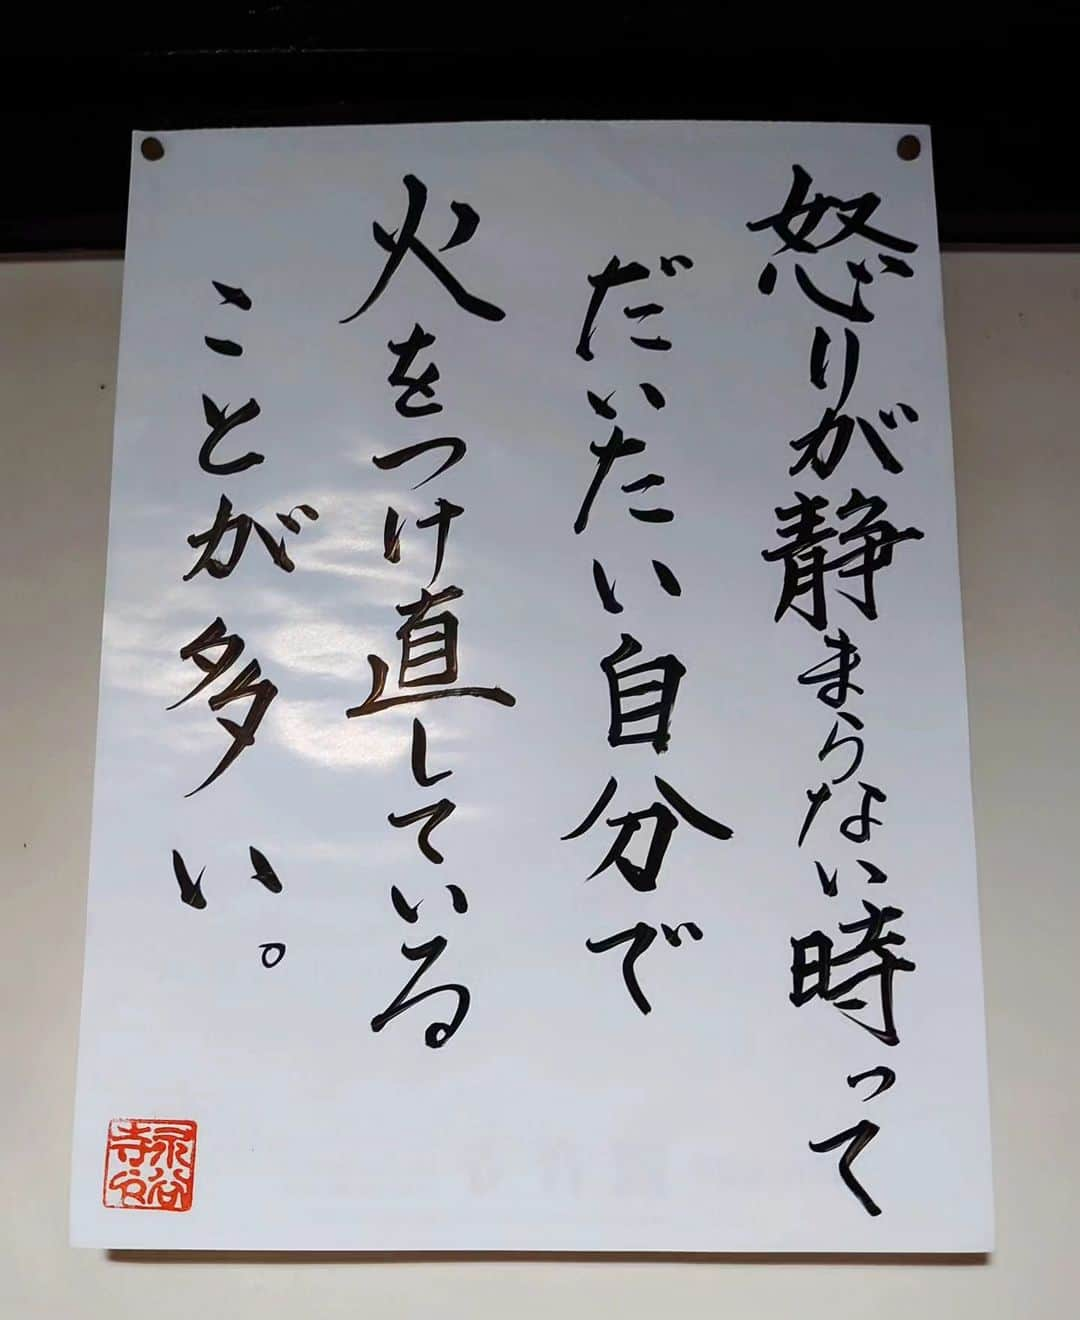 怒りが静まらない時って
だいたい自分で
火をつけ直している
ことが多い。
永谷
寺